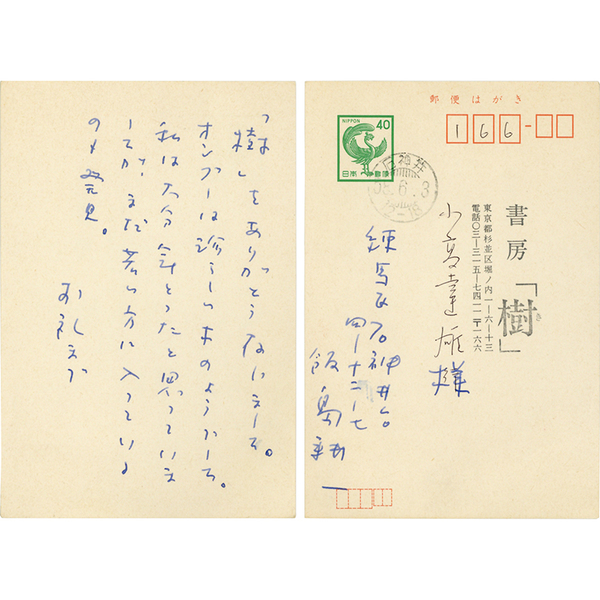 「樹」をありがとうございます。
オンブーは珍らしい木のようです。
私は大分年とったと思っていま
したが、まだ若い方に入っている
のを発見。
お礼まで
郵便はがき
166-
NIPPON 40
日本郵便
石神井
6. 3
書房「樹」
東京都杉並区堀ノ内一ー六ー十三
電話〇三ー三一五ー七四一一〒一六六
様
練馬区石神井台
四ー十二ー七
飯島耕一